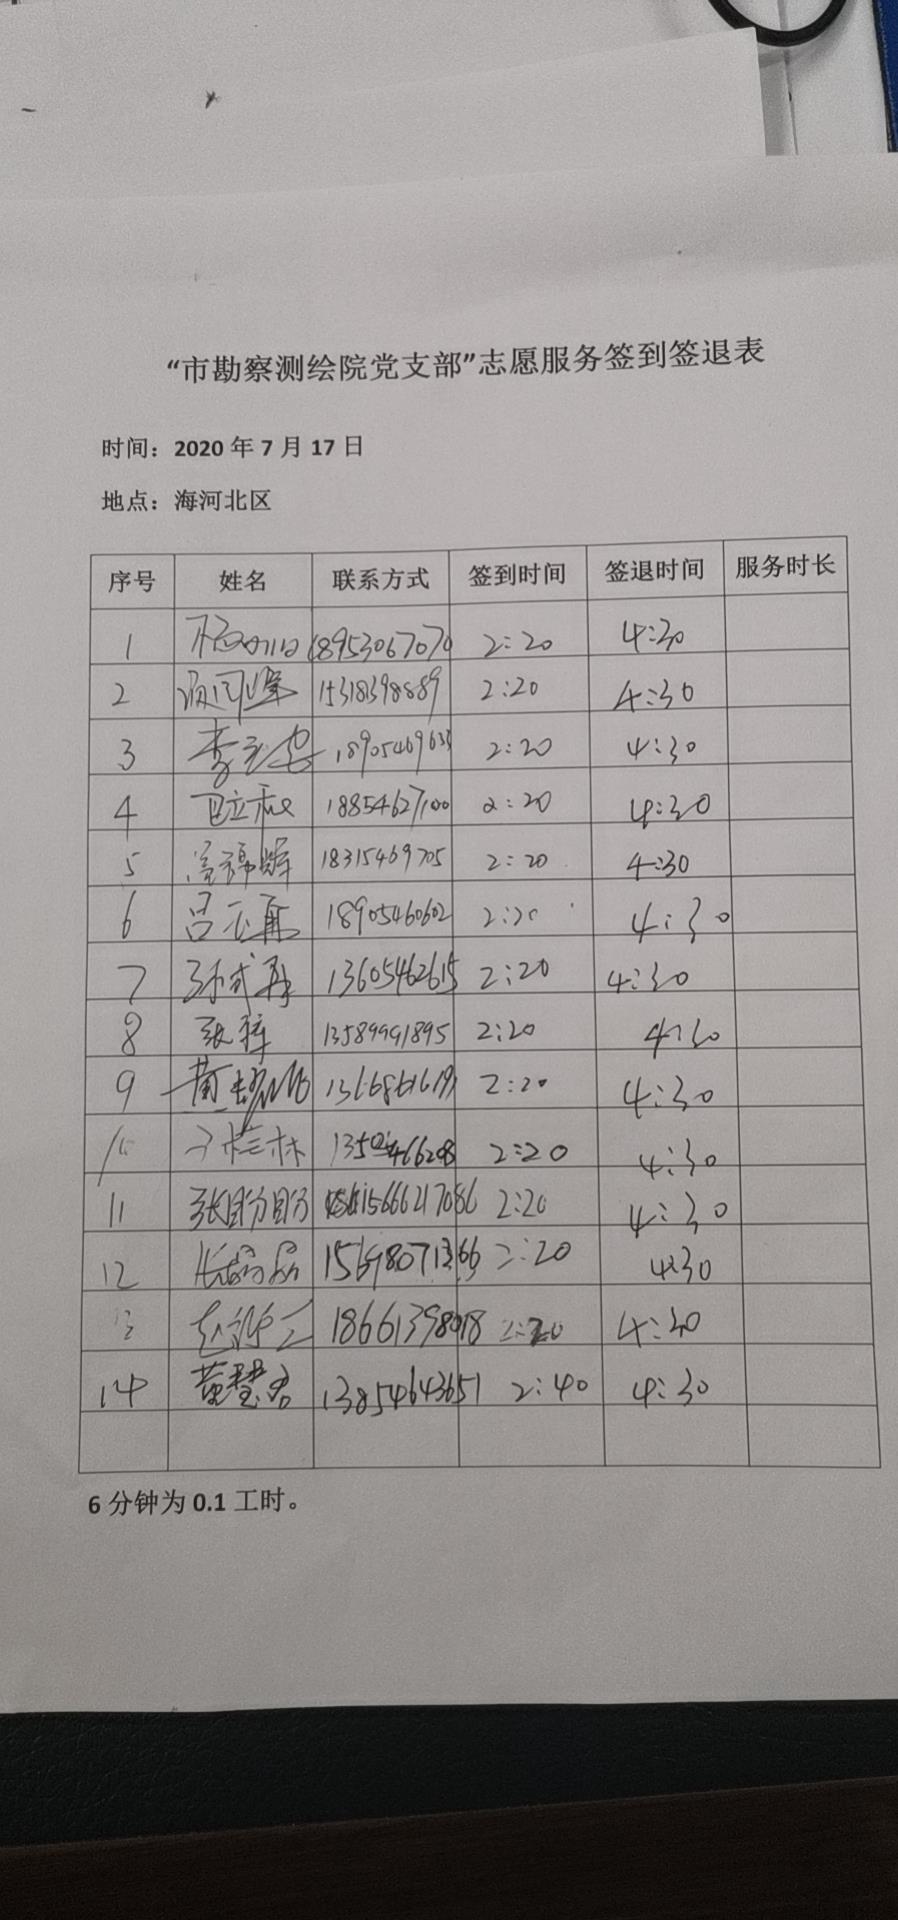 “市勘察测绘院党支部”志愿服务签到签退表
时间：2020 年 7 月 17 日
地点：海河北区
序号 姓名 联系方式 签到时间 签退时间 服务时长
1 18953067070 2:20 4:30
2 15318398889 2:20 4:30
3 李 2:20 4:30
4 18854627100 2:20 4:30
5 18315469705 2:20 4:30
6 吕 18905460602 2:20 4:30
7 孙 13605462615 2:20 4:30
8 张 13589991895 2:20 4:30
9 黄 2:20 4:30
10 桂林 2:20 4:30
11 张盼盼 15666217086 2:20 4:30
12 2:20 4:30
13 赵 18661398018 2:20 4:30
14 黄慧君 13854643651 2:40 4:30
6 分钟为 0.1 工时。